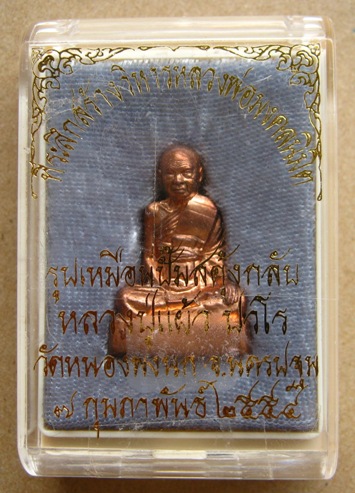 ที่ระลึกสร้างวิหารหลวงพ่อ
รูปเหมือนปั๊มสตางค์กลับ
หลวงปู่แผ้ว ปวโร
วัดหนองพงนก จ.นครปฐม
๗ กุมภาพันธ์ ๒๕๕๔